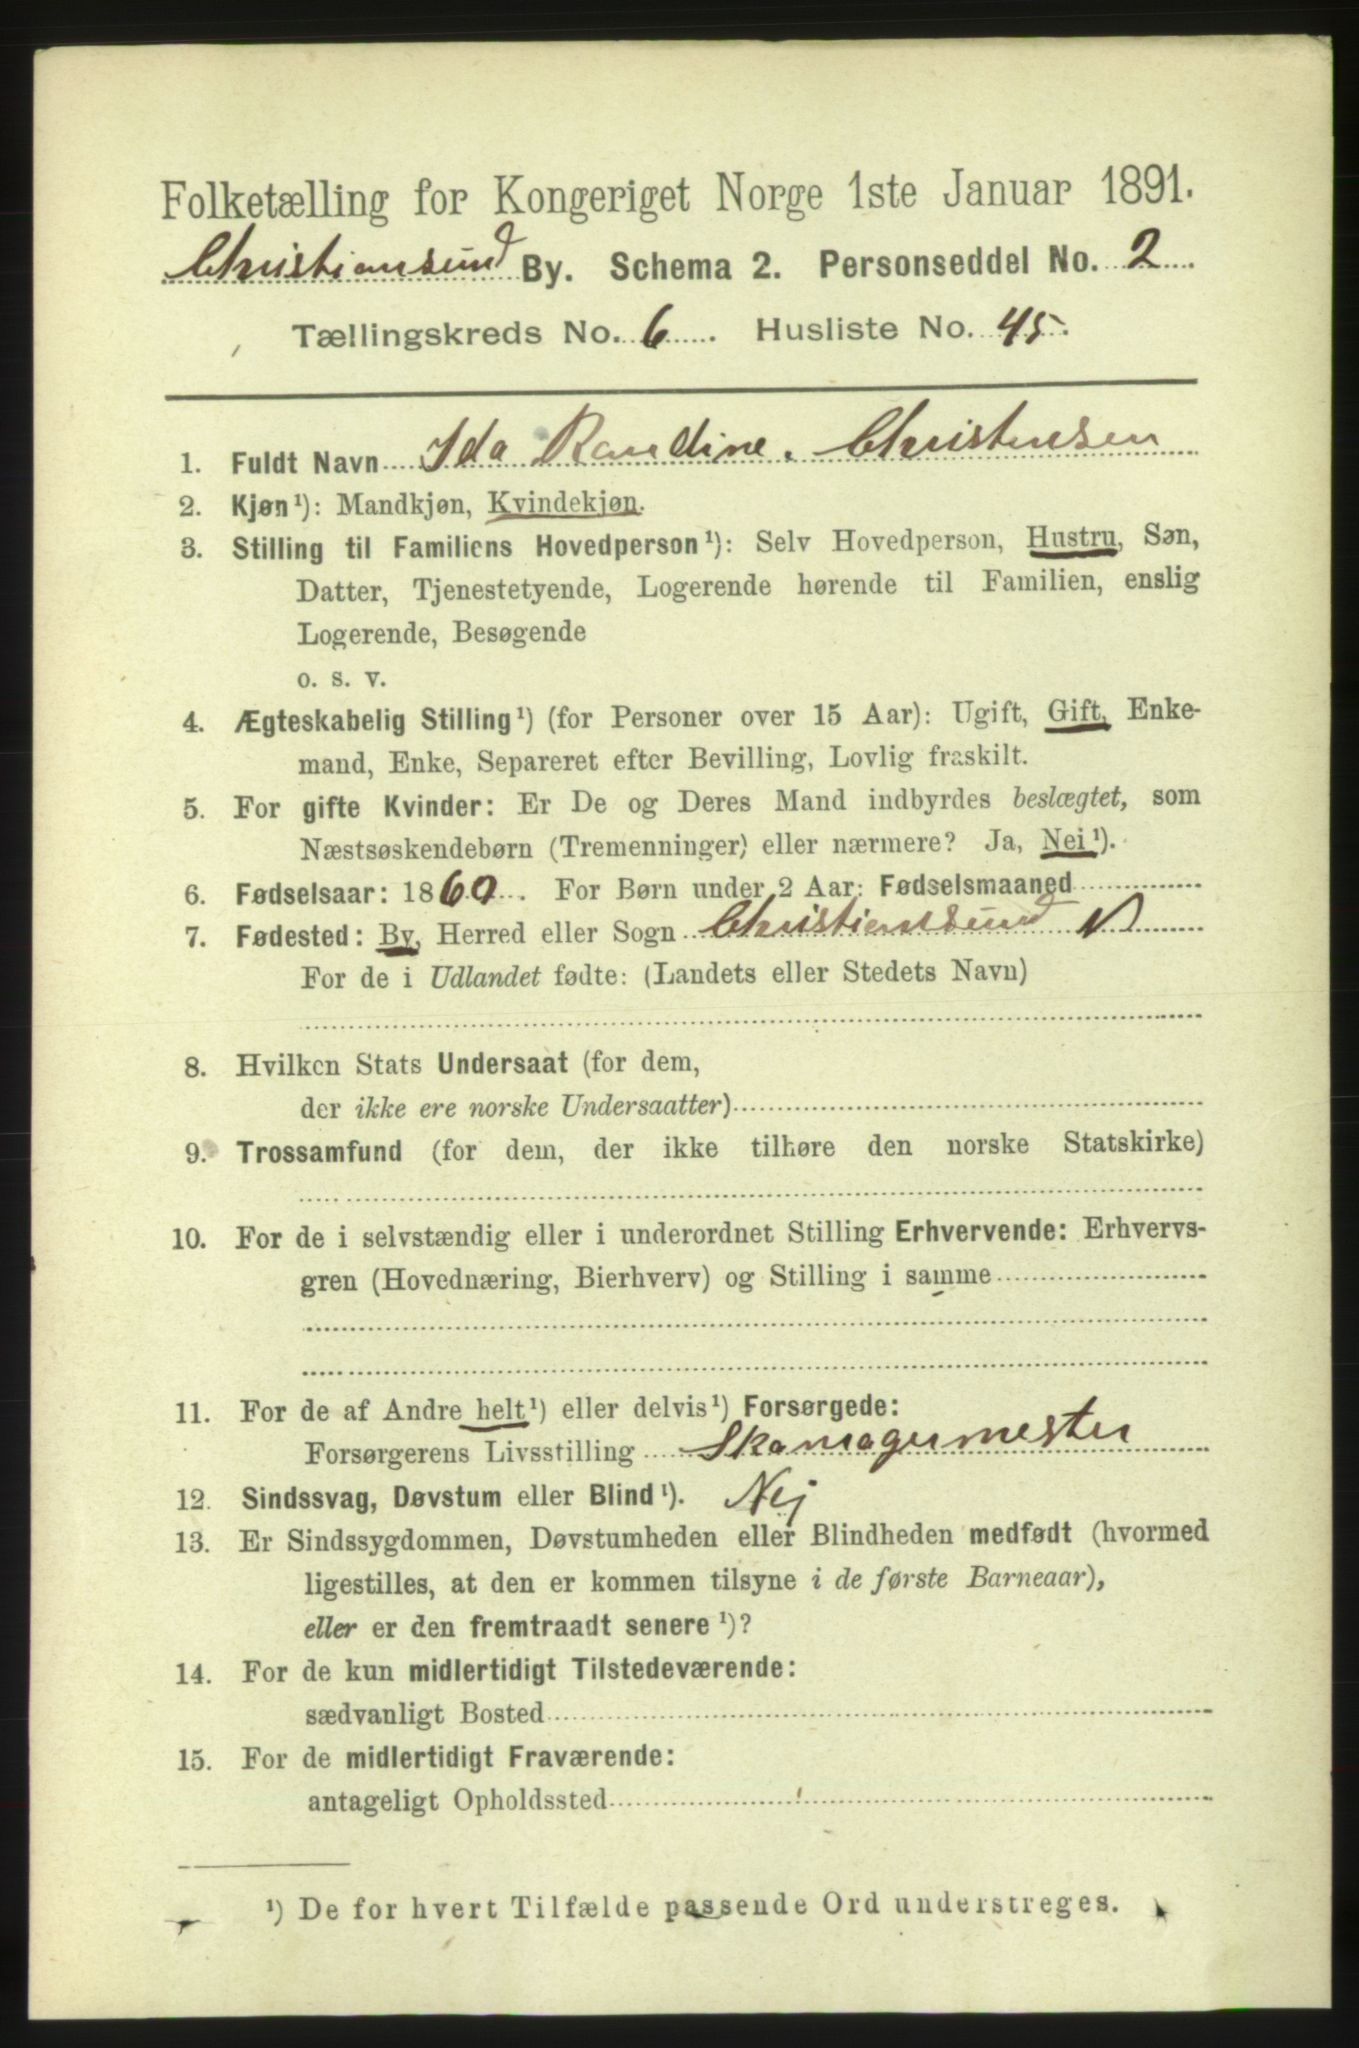 Folketælling for Kongeriget Norge 1ste Januar 1891.
Christiansund By. Schema 2. Personseddel No. 2
Tællingskreds No. 6. Husliste No. 45.
1. Fuldt Navn Ida Randine. Christensen
2. Kjøn¹): Mandkjøn, Kvindekjøn.
3. Stilling til Familiens Hovedperson¹): Selv Hovedperson, Hustru, Søn,
Datter, Tjenestetyende, Logerende hørende til Familien, enslig
Logerende, Besøgende
o. s. v.
4. Ægteskabelig Stilling¹) (for Personer over 15 Aar): Ugift, Gift, Enke-
mand, Enke, Separeret efter Bevilling, Lovlig fraskilt.
5. For gifte Kvinder: Er De og Deres Mand indbyrdes beslægtet, som
Næstsøskendebørn (Tremenninger) eller nærmere? Ja, Nei¹).
6. Fødselsaar: 1860. For Børn under 2 Aar: Fødselsmaaned
7. Fødested: By, Herred eller Sogn Christiansund N
For de i Udlandet fødte: (Landets eller Stedets Navn)
8. Hvilken Stats Undersaat (for dem,
der ikke ere norske Undersaatter)
9. Trossamfund (for dem, der ikke tilhøre den norske Statskirke)
10. For de i selvstændig eller i underordnet Stilling Erhvervende: Erhvervs-
gren (Hovednæring, Bierhverv) og Stilling i samme
11. For de af Andre helt¹) eller delvis¹) Forsørgede:
Forsørgerens Livsstilling Skomagermester
12. Sindssvag, Døvstum eller Blind¹). Nej
13. Er Sindssygdommen, Døvstumheden eller Blindheden medfødt (hvormed
ligestilles, at den er kommen tilsyne i de første Barneaar),
eller er den fremtraadt senere¹)?
14. For de kun midlertidigt Tilstedeværende:
sædvanligt Bosted
15. For de midlertidigt Fraværende:
antageligt Opholdssted
¹) De for hvert Tilfælde passende Ord understreges.